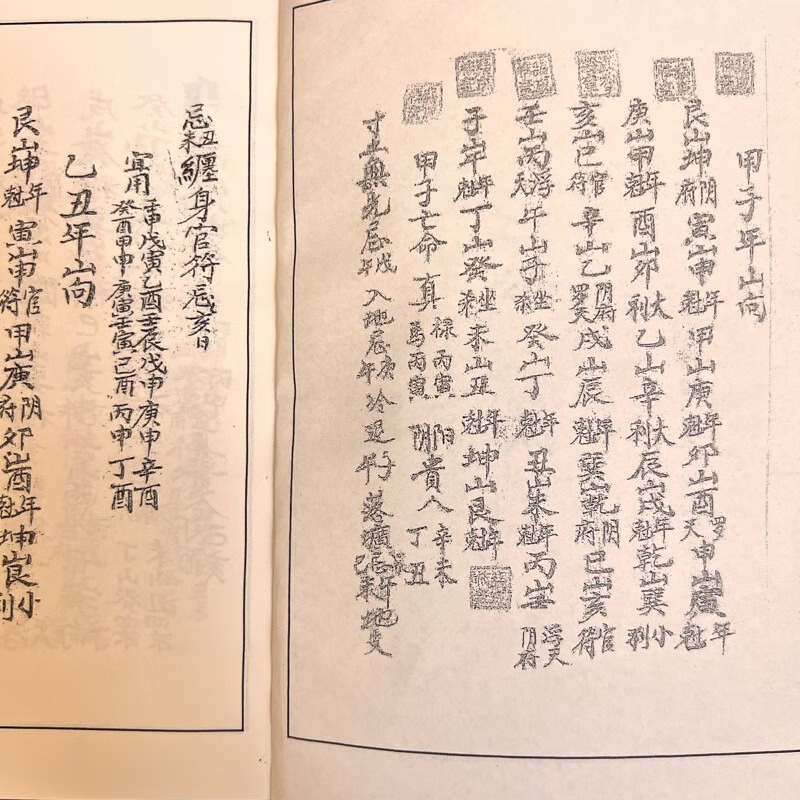 甲子年山向
艮山坤阴府寅山申年尅甲山庚年尅卯山酉罗天申山寅年尅
庚山甲年尅酉山卯大利乙山辛大利辰山戌年尅乾山巽小利
亥山巳官符辛山乙阴府罗天戌山辰年尅巽山乾阴府巳山亥官符
壬山丙浮天午山子坐煞癸山丁年尅丑山未年尅丙山壬浮天阴府
子山午年尅丁山癸坐煞未山丑年尅坤山艮年尅
甲子亡命真禄丙寅马丙寅阳阴貴人辛未丁丑
寸土無光忌戊年入地忌庚年冷退子年落壙忌
忌丑未纏身官符忌亥日
宜用壬申戊寅乙酉壬辰戊申庚申辛酉
癸酉甲申庚寅壬寅己酉丙申丁酉
乙丑年山向
艮山坤年尅寅山申官符甲山庚阴府卯山酉年尅坤山艮小利